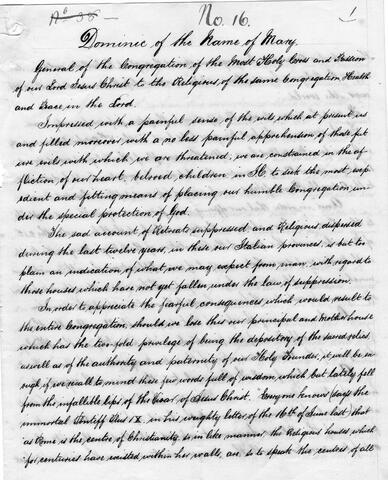 No. 16.
1
Dominic of the Name of Mary,
General of the Congregation of the Most Holy Cross and Passion
of our Lord Jesus Christ to the Religious of the same Congregation Health
and Peace in the Lord.
Impressed with a painful sense of the evils which at present us
and filled moreover with a no less painful apprehension of those fut
ure evils with which we are threatened, we are constrained in the af
fliction of our heart, beloved children in to seek the most exp
edient and fitting means of placing our humble Congregation un
der the special protection of God.
The sad account of Retreats suppressed and Religious dispersed
during the last twelve years, in these our Italian provinces, is but too
plain an indication of what we may expect from man with regard to
those houses which have not yet fallen under the law of suppression.
In order to appreciate the fearful consequences which would result to
the entire Congregation, should we lose this our principal and Mother house
which has the two-fold privilege of being the depository of the sacred relics
as well as of the authority and paternity of our Holy Founder, it will be en
ough, if we recall to mind these few words full of wisdom, which but lately fell
from the infallible lips of the Vicar of Jesus Christ. Everyone knows (says the
immortal Pontiff Pius IX, in his weighty letter of the 16th of June last) that
as Rome is the centre of Christianity, so in like manner, the Religious houses which
for centuries have existed within her walls, are so to speak the centers of all